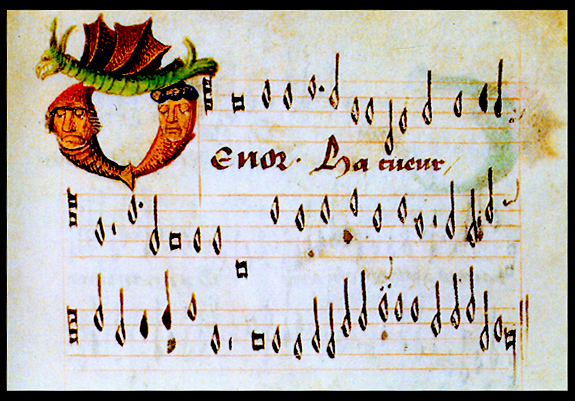 Tenor. Ha cueur